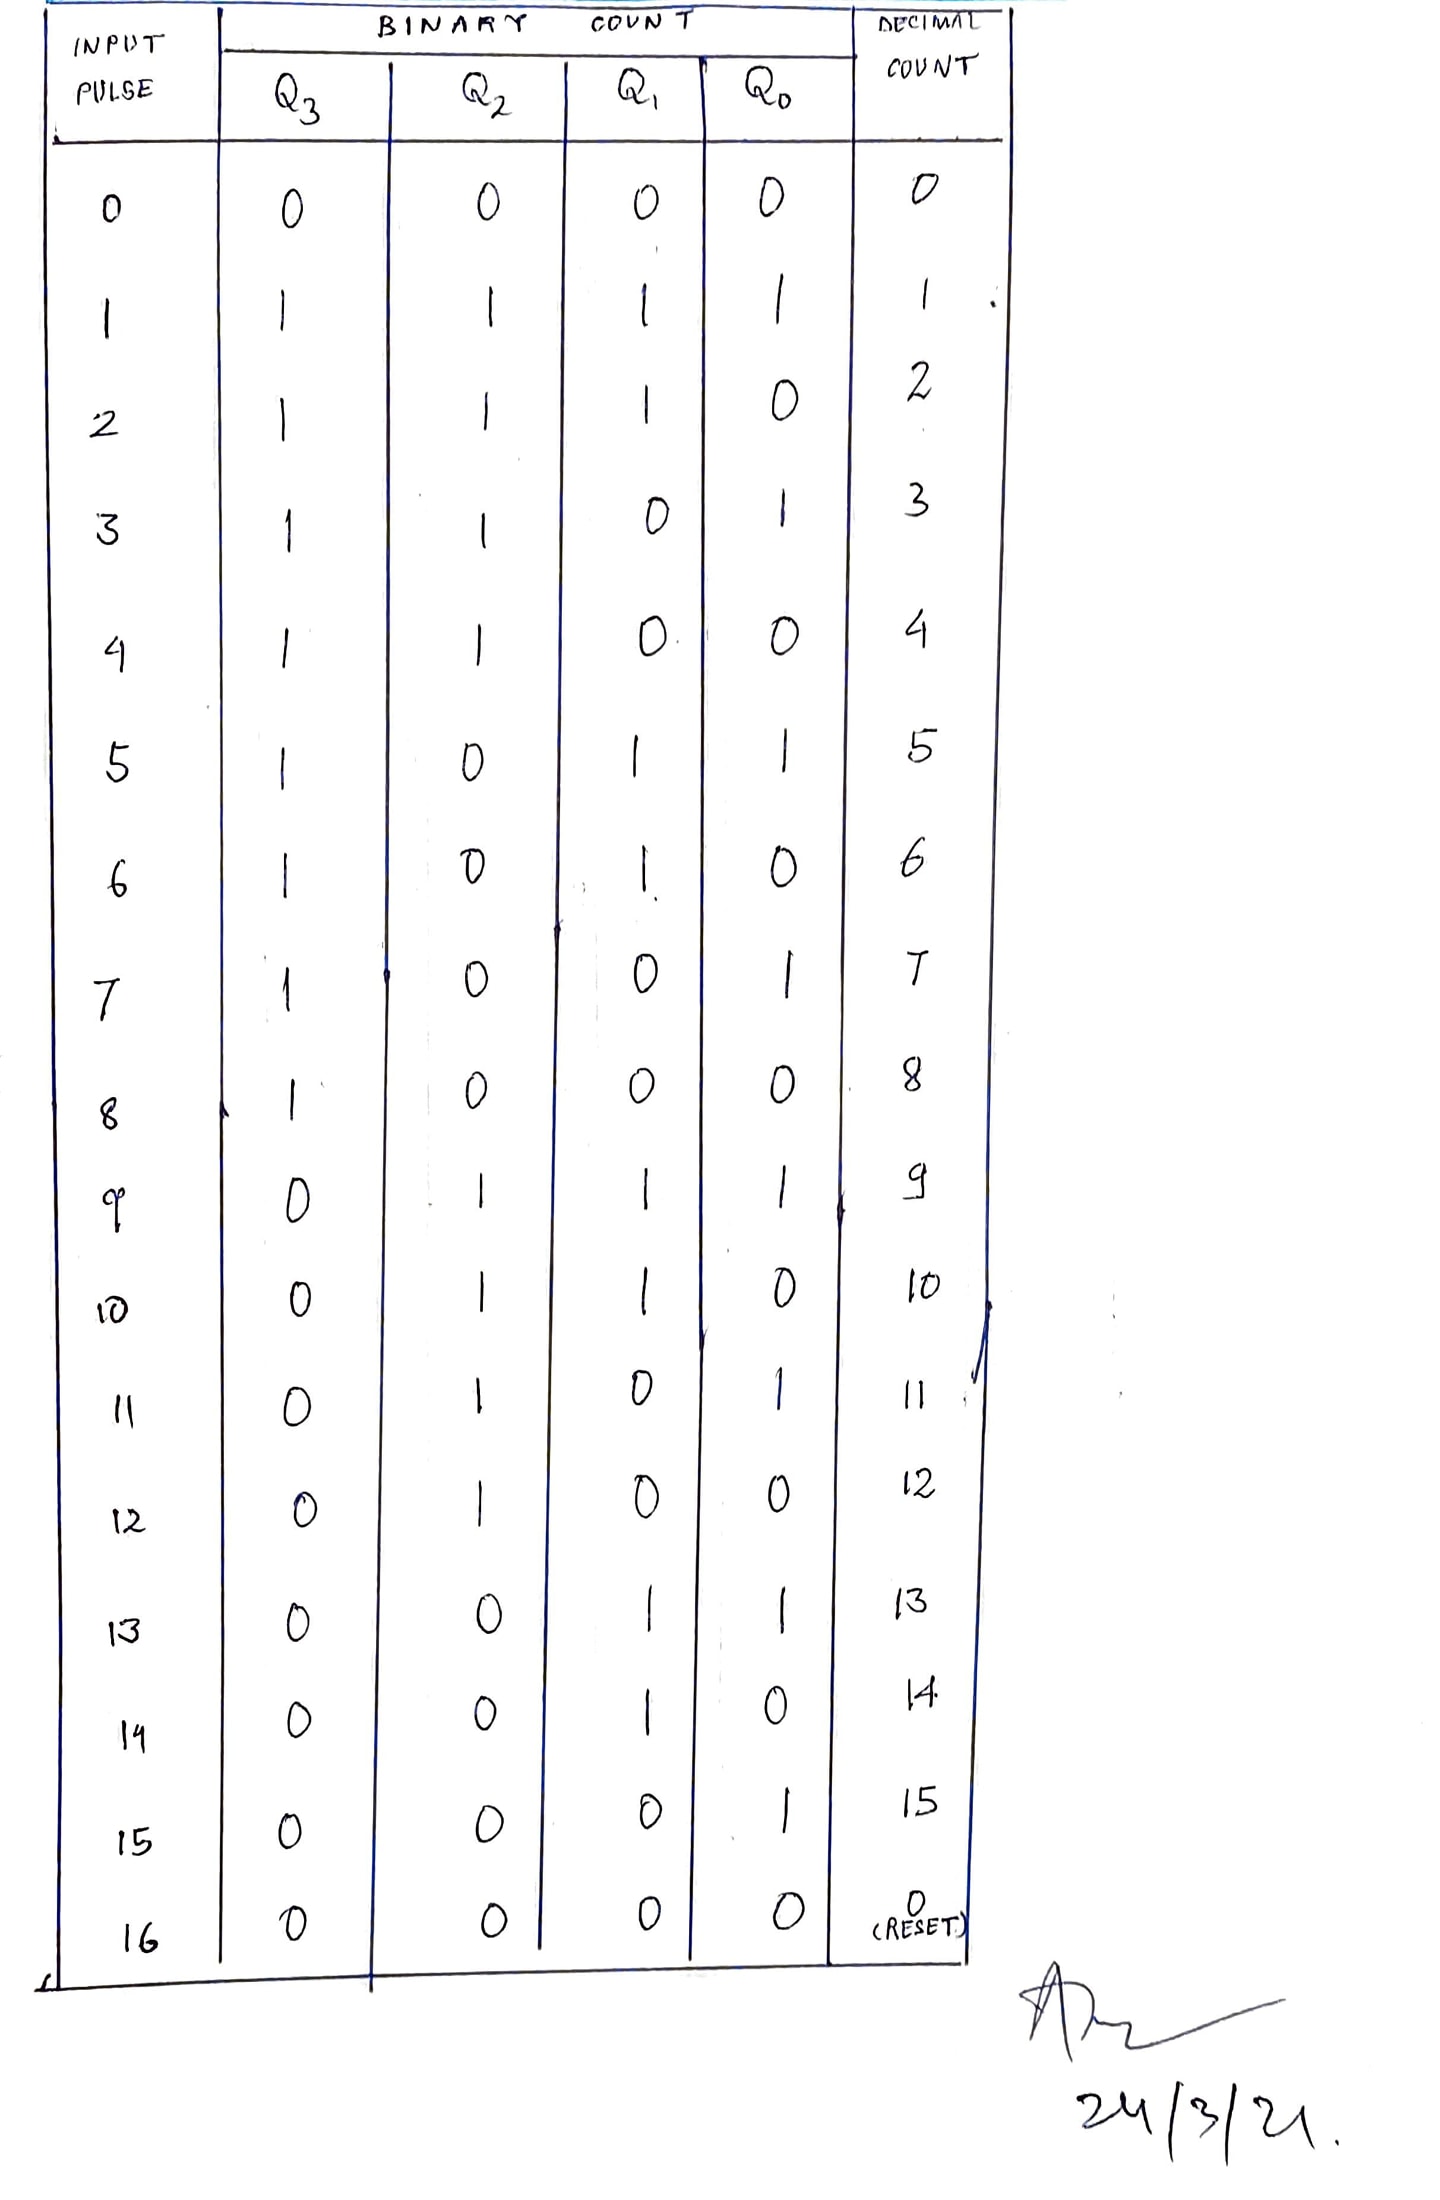 INPUT PULSE BINARY COUNT DECIMAL COUNT
Q3 Q2 Q1 Q0
0 0 0 0 0 0
1 1 1 1 1 1
2 1 1 1 0 2
3 1 1 0 1 3
4 1 1 0 0 4
5 1 0 1 1 5
6 1 0 1 0 6
7 1 0 0 1 7
8 1 0 0 0 8
9 0 1 1 1 9
10 0 1 1 0 10
11 0 1 0 1 11
12 0 1 0 0 12
13 0 0 1 1 13
14 0 0 1 0 14
15 0 0 0 1 15
16 0 0 0 0 0
(RESET)
24/3/21.